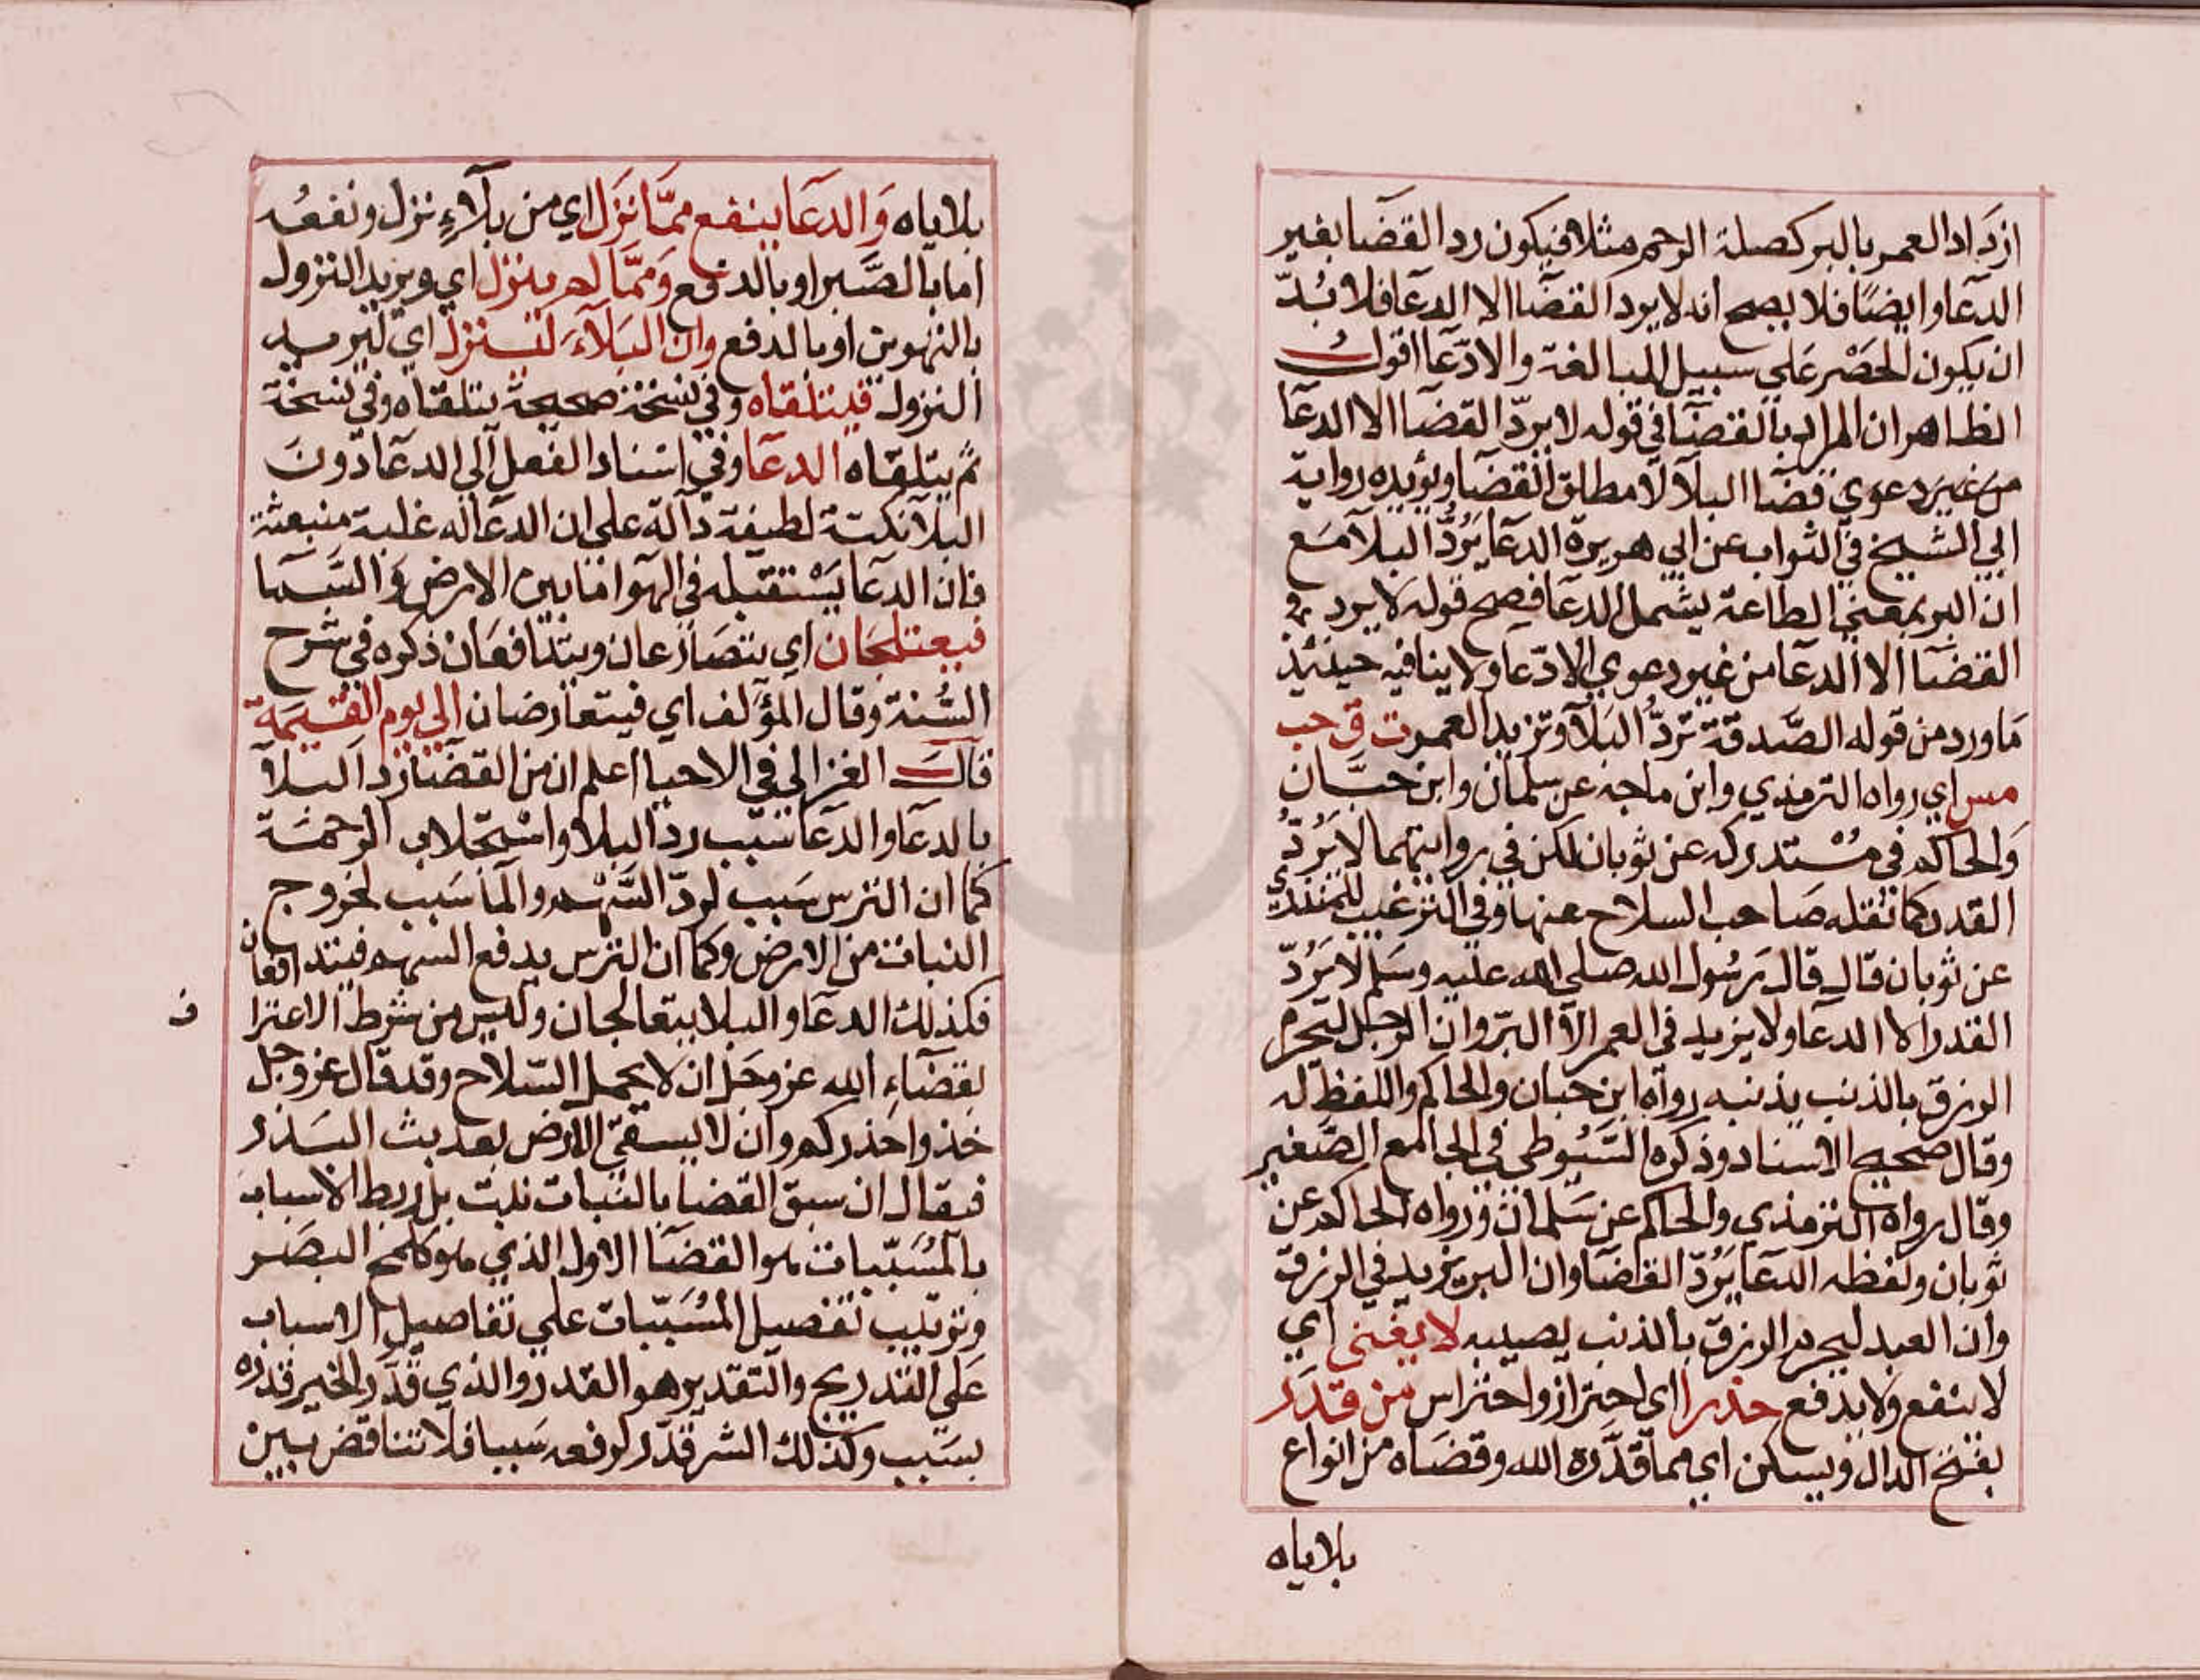 ازداد العمر بالبر كصلة الرحم مثلا فيكون رد القضا بغير
الدعا وايضا فلا يصح انه لا يرد القضا الا الدعا فلا بُدّ
ان يكون الحصر علي سبيل المبالغة والادّعا اقول
الظاهر ان المراد بالقضا في قوله لا يردّ القضا الا الدعا
من غير دعوي قضا البلآ لا مطلق القضا ويؤيده رواية
ابي الشيخ في الثواب عن ابي هريرة الدعا يَرُدُّ البلآ مع
ان البر بمعني الطاعة يشمل الدعا فيصح قوله لا يرد
القضا الا الدعا من غير دعوي الادّعا ولا ينافيه حينئذ
ما ورد من قوله الصَّدقة تردُّ البلآ وتزيد العمر ت ق حب
مس اي رواه الترمذي وابن ماجه عن سلمان وابن حبَّان
والحاكم في مُسْتدركه عن ثوبان لكن في روايتهما لا يَرُدّ
القدر كما نقله صاحب السلاح عنها وفي الترغيب للمنذري
عن ثوبان قال قال رسُول الله صلي الله عليه وسلم لا يَرُدّ
القدر الا الدعا ولا يزيد في العمر الاّ البرّ وان الرجل ليحرم
الرزق بالذنب يذنبه رواه ابن حبان والحاكم واللفظ له
وقال صحيح الاسناد وذكره السَّيُوطي في الجامع الصَّغير
وقال رواه الترمذي والحاكم عن سَلمان ورواه الحاكم عن
ثوبان ولفظه الدعا يَرُدّ القضا وان البر يزيد في الرزق
وان العبد ليحرم الرزق بالذنب يصيبه لا يغني اي
لا ينفع ولا يدفع حذرا اي احتراز واحتراس من قدر
بفتح الدال ويسكن اي مما قدَّره الله وقضاه من انواع
بلاياه
بلاياه وَالدعَا ينفع ممَّا نَزَل اي من بلآءٍ نزل ونفعُه
اما بالصَّبر او بالدفع وَممَّا لم ينزل اي ويريد النزول
بالتهوين او بالدفع وان البلآءَ لينزل اي ليريد
النزول فيتلقاه وفي نسخة صحيحة يتلقاه وفي نسخة
ثم يتلقاه الدعا وفي اسناد الفعل الي الدعا دون
البلآ نكتة لطيفة دالة علي ان الدعا له غلبة منبعثة
فان الدعا يَسْتقبله في الهوا ما بين الارض والسما
فيعتلجان اي يتصارعان ويتدافعان ذكره في شرح
السُّنة وقال المؤلف اي فيتعارضان الي يوم القيمة
قال الغزالي في الاحيا اعلم ان من القضا رد البلآ
بالدعا والدعا سبب رد البلا واستجلاب الرحمة
كما ان الترس سَبب لردّ السَّهم والما سَبب لخروج
النبات من الارض وكما ان الترس يدفع السهم فيتدافعان
فكذلك الدعا والبلا يتعالجان وليس من شرط الاعترا
ف
بقضاءِ الله عز وجل ان لا يحمل السّلاح وقد قال عز وجل
خذوا حذركم وان لا يسقي الارض بعد بث البذر
فيقال ان سبق القضا بالنبات نبت بل ربط الاسباب
بالمُسَبّبات هو القضا الاول الذي هو كلمح البصَر
وترتيب تفصيل المُسَبّبات علي تفاصيل الاسباب
عَلي التدريج والتقدير هو القدر والذي قدّر الخير قدره
بسَبب وكذلك الشر قدّر لرفعه سَببا فلا تناقض بين